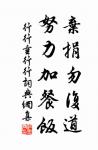 棄捐勿復道
努力加餐飯
行行重行行詞典網喜